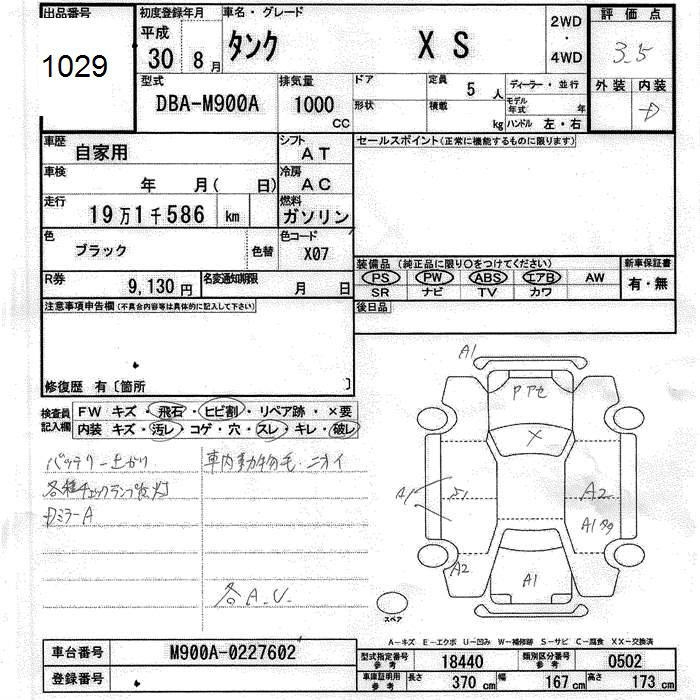 出品番号 初度登録年月 車名・グレード 2WD ・ 4WD 評価点
1029 平成 30 8月 タンク X S 3.5
型式 DBA-M900A 排気量 1000 CC ドア 定員 5 人 ディーラー・並行 外装 内装
形状 積載 kg モデル年式 年 ハンドル 左・右 D
車歴 自家用 シフト AT セールスポイント(正常に機能するものに限ります)
車検 年 月( 日) 冷房 AC
走行 19万1千586 km 燃料 ガソリン
色 ブラック 色替 色コード X07
装備品(純正品に限り○をつけてください) 新車保証書
R券 9,130円 名変通知期限 月 日 PS PW ABS エアB AW 有・無
SR ナビ TV カワ
注意事項申告欄(不具合内容等は具体的に記入して下さい) 後日品
修復歴 有〔箇所 〕
検査員記入欄 FW キズ・飛石・ヒビ割・リペア跡・×要
内装 キズ・汚レ・コゲ・穴・スレ・キレ・破レ
バッテリー上がり 車内動物毛・ニオイ
各種チェックランプ点灯
DミラーA
各A.U.
A1
Pアセ
X
A1
A2
A1
A2
A1
スペア
A-キズ E-エクボ U-凹み W-補修跡 S-サビ C-腐食 XX-交換済
車台番号 M900A-0227602 型式指定番号 参考 18440 類別区分番号 参考 0502
登録番号 車庫証明用 参考 長さ 370 cm 幅 167 cm 高さ 173 cm